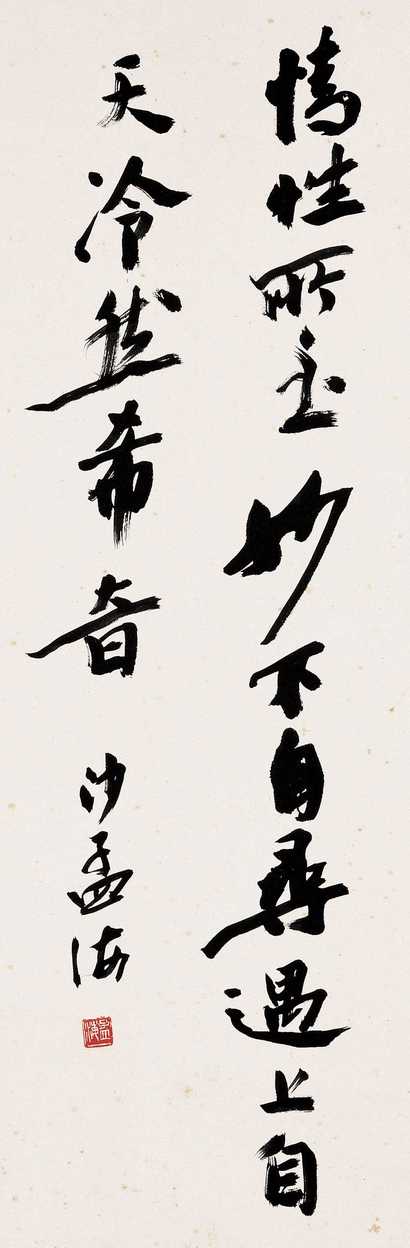 情性所至妙不自尋遇之自
天泠然希音
沙孟海
孟海